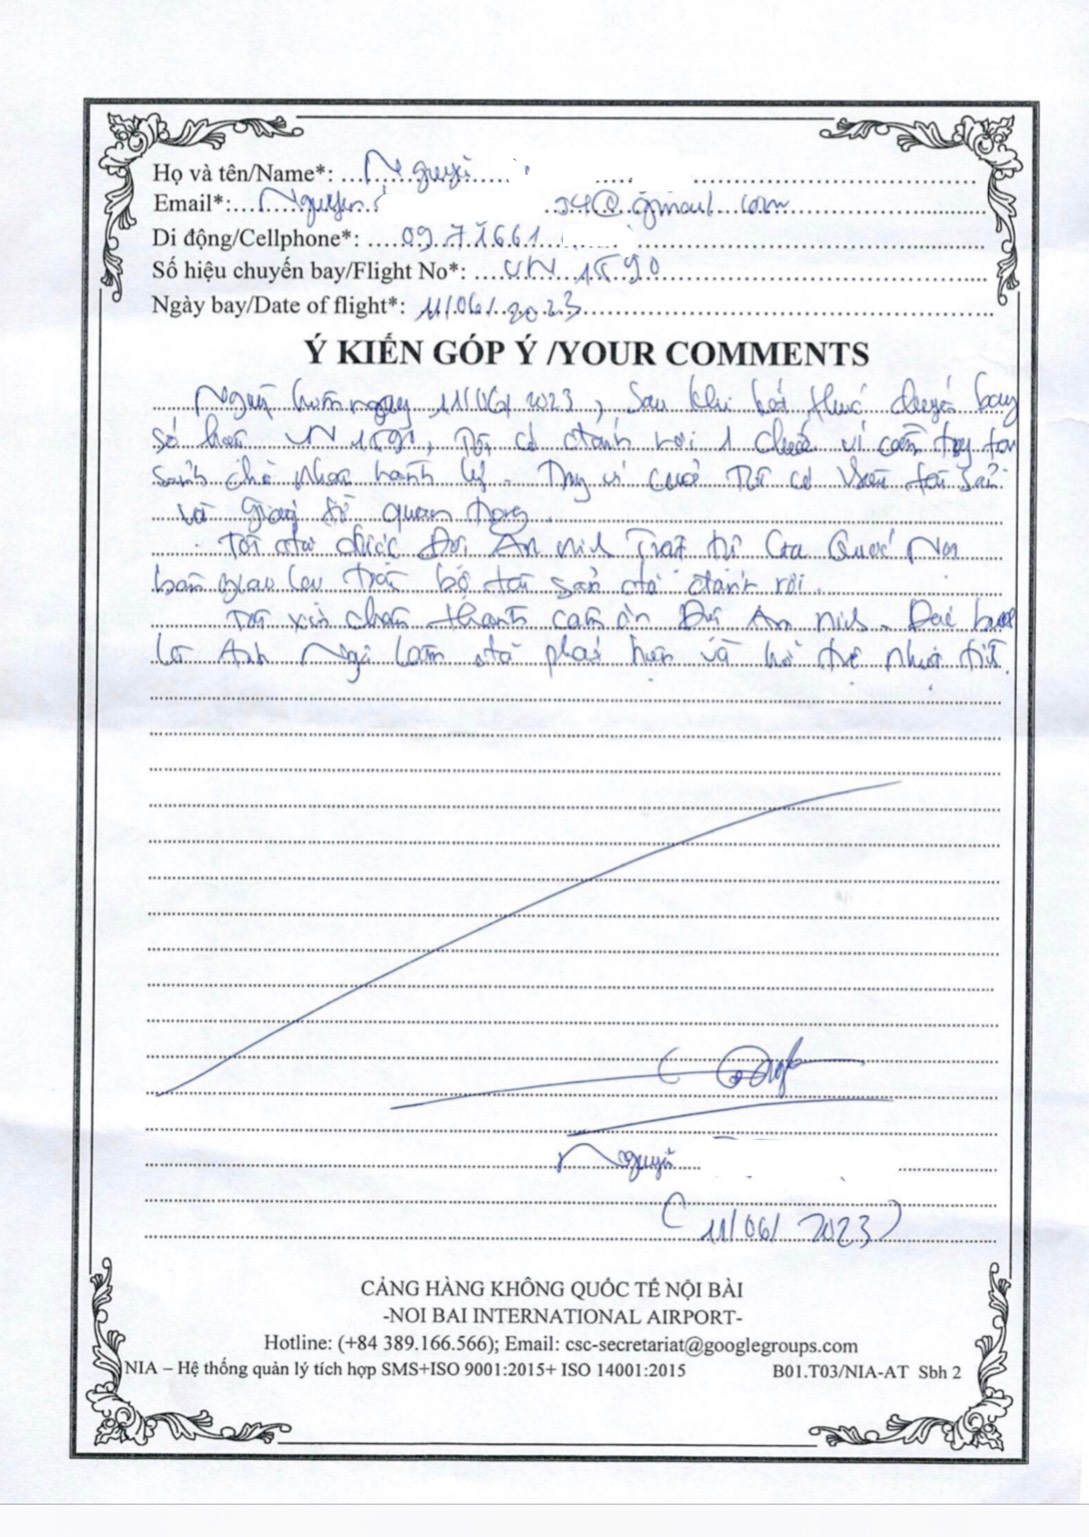 Họ và tên/Name*: Nguyễn
Email*: Nguyen 94@gmail.com
Di động/Cellphone*: 0971661
Số hiệu chuyến bay/Flight No*: VN 1590
Ngày bay/Date of flight*: 11/06/2023
Ý KIẾN GÓP Ý /YOUR COMMENTS
Ngày hôm nay 11/06/2023, Sau khi kết thúc chuyến bay
số hiệu VN 1590, Tôi có đánh rơi 1 chiếc ví cầm tay tại
sảnh chờ nhận hành lý. Trong ví của Tôi có tài sản
và giấy tờ quan trọng.
Tôi đã được Đội An ninh Trật tự Ga Quốc Nội
bàn giao lại toàn bộ tài sản đã đánh rơi.
Tôi xin chân thành cảm ơn Đội An ninh. Đặc biệt
là Anh Ngô đã phát hiện và hỗ trợ nhiệt tình.
Nguyễn
(11/06/2023)
CẢNG HÀNG KHÔNG QUỐC TẾ NỘI BÀI
-NOI BAI INTERNATIONAL AIRPORT-
Hotline: (+84 389.166.566); Email: csc-secretariat@googlegroups.com
NIA – Hệ thống quản lý tích hợp SMS+ISO 9001:2015+ ISO 14001:2015 B01.T03/NIA-AT Sbh 2